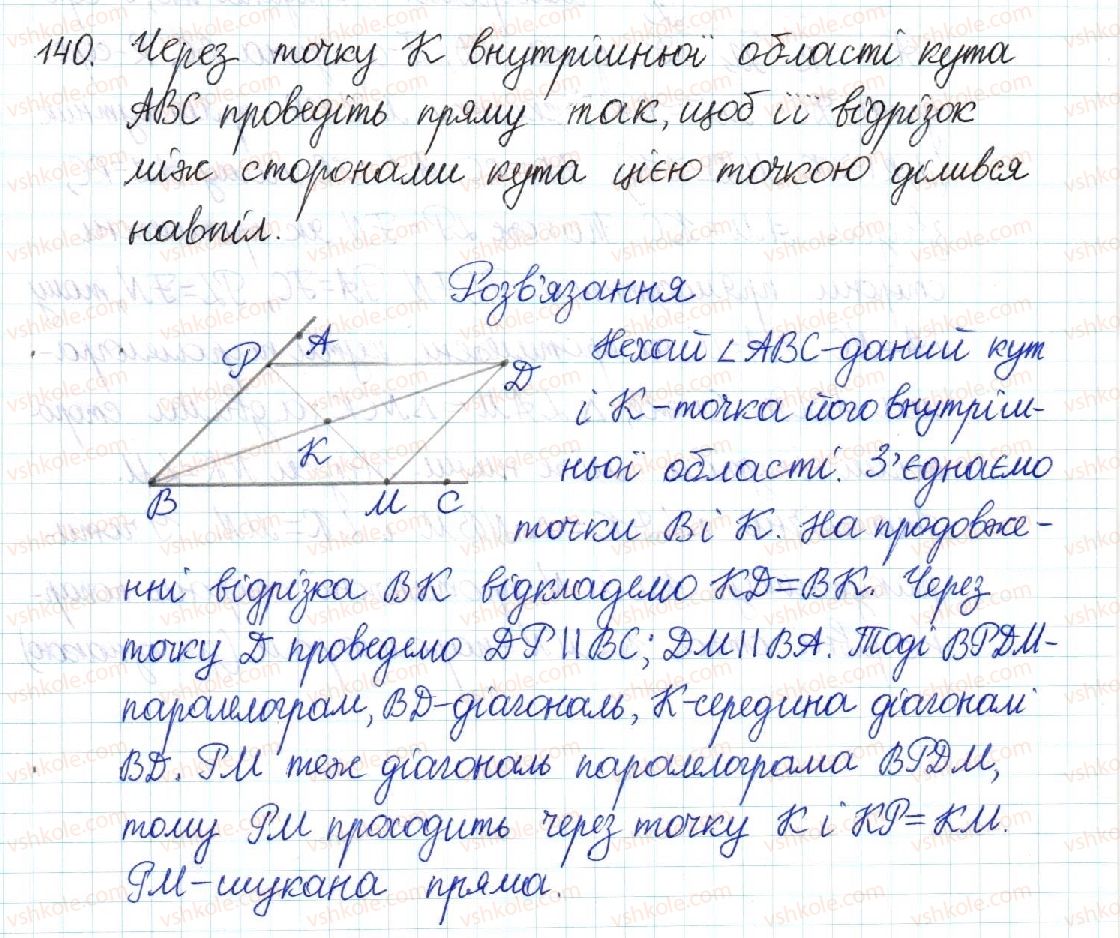 140. Через точку К внутрішньої області кута
АВС проведіть пряму так, щоб її відрізок
між сторонами кута цією точкою ділився
навпіл.
Розв'язання
P A D
K
B M C
Нехай ∠АВС-даний кут
і К-точка його внутріш-
ньої області. З'єднаємо
точки В і К. На продовже-
нні відрізка ВК відкладемо KD=BK. Через
точку D проведемо DP||BC; DM||BA. Тоді BPDM-
паралелограм, BD-діагональ, К-середина діагоналі
BD. PM теж діагональ паралелограма BPDM,
тому PM проходить через точку К і KP=KM.
PM-шукана пряма.
vshkole.com